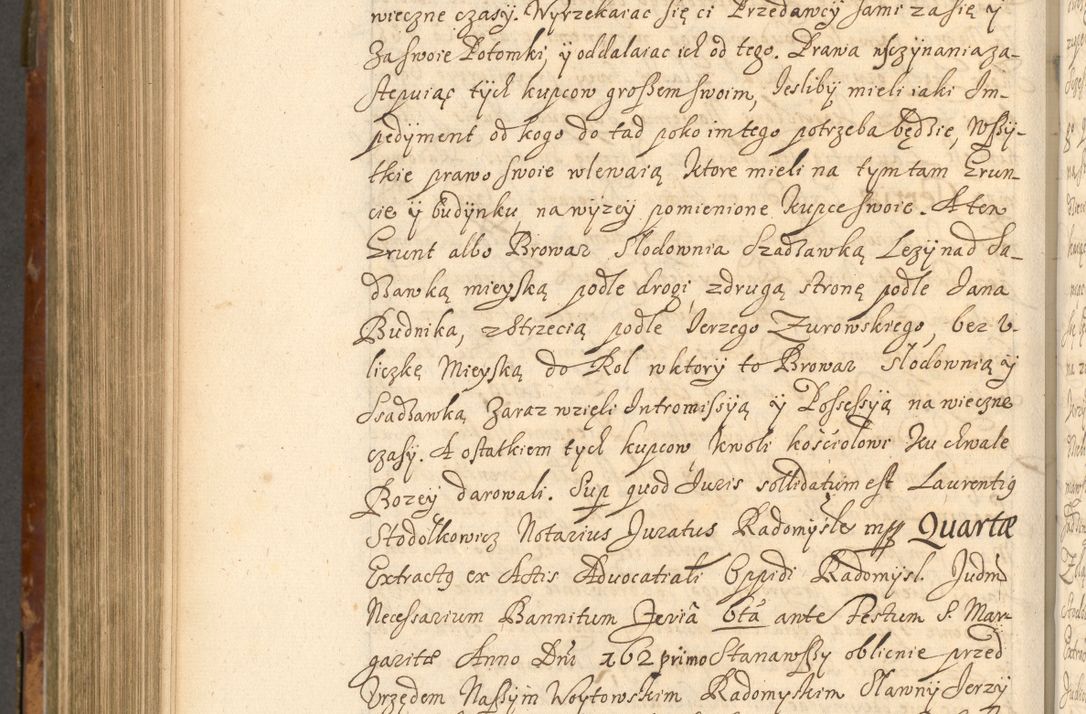 wieczne czasy. Wyrzekaiac się ci Przedawcy sami za się y
Za swoie Potomki, y oddalaiac ich od tego. Prawa wsczynania za-
stepuiąc tych kupcow grossem swoim, Iesliby mieli iaki Im-
pedyment od kogo do tad poko im tego potrzeba będzie, Wssy-
tkie prawo swoie wlewaią, ktore mieli na tym tam Grun-
cie y budynku, na wyzey pomienione kupce swoie. A ten
Grunt albo Browar Slodownia Szadzawką Lezy nad Sa-
dzawką mieyską podle drogi, z drugą stronę podle Jana
Budnika, z Strzecią podle Jerzego Zurowskiego, bez V-
liczkę Mieyską do Rol w ktory to Browar Slodownią y
Ssadzawką Zaraz wzięli Intromissyą y Possessyą na wieczne
czasy. A ostatkiem tych kupcow kwoli kościolowi ku chwale
Bozey darowali. Sup quod Juris sollidatum est Laurentig
Stodolkowicz Notarius Juratus Radomysle mpp Quartæ
Extractg ex Actis Advocatiali Oppidi Radomysl. Judm
Necessarium Bannitum Feria 6ta ante Festum S. Mar-
garitæ Anno Dni 162primo Stanawssy oblicnie przed
Vrzędem Nassym Woytowskim Radomyskim Slawny Jerzy